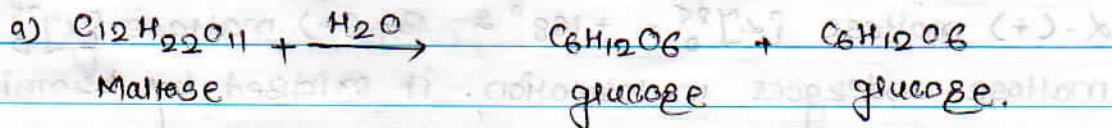 a) C12H22O11 + H2O → C6H12O6 + C6H12O6
Maltase glucose glucose.